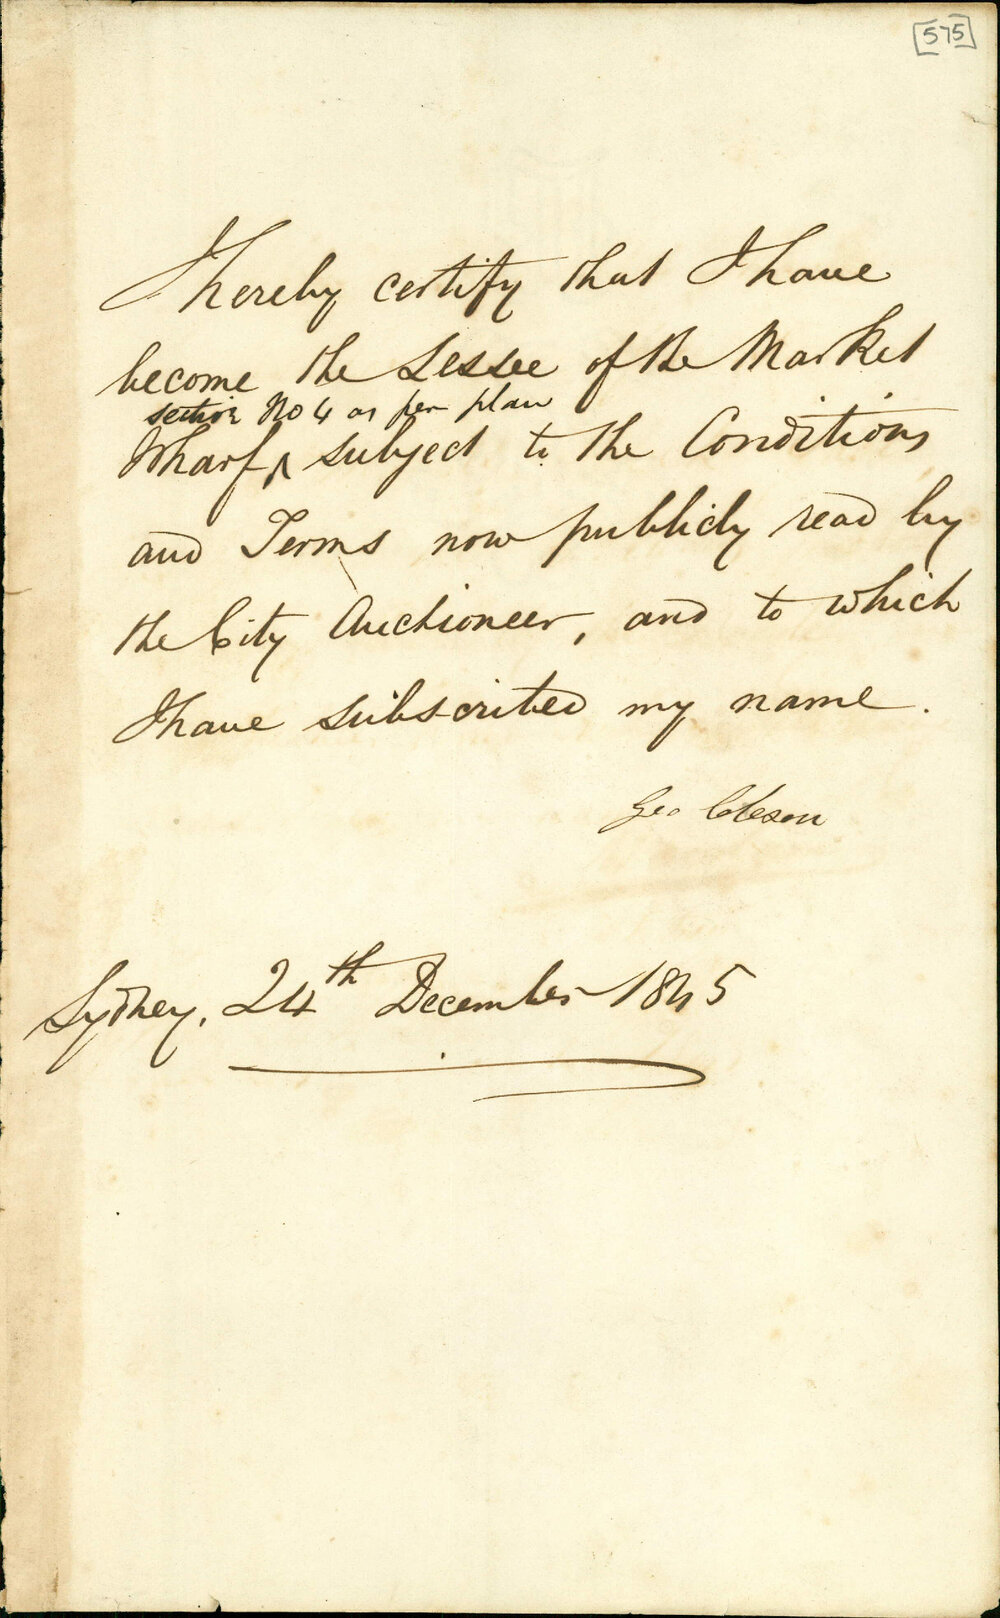 [575]
I hereby certify that I have
become the Lessee of the Market
section No 4 as per plan
Wharf ^ subject to the Conditions
and Terms now publicly read by
the City Auctioneer, and to which
I have subscribed my name.
Geo Coleson
Sydney, 24th December 1845